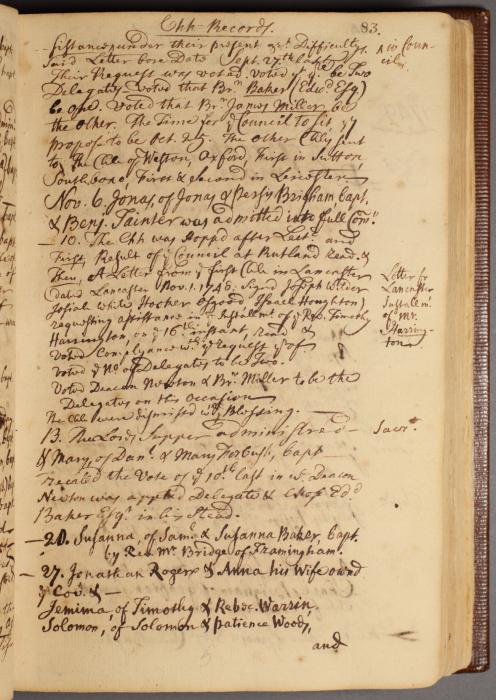 Chh Records.
83.
sistance under their present grt Difficultys.
said Letter bore Date Sept. 27th last
Their Request was voted. voted yt yr be Two
Delegates. Voted that Br. Baker (Edwd Esq)
be one. Voted that Br. James Miller be
the other. The Time for ye Council to sit yy
propose to be Oct. 25. The other Chhs sent
to, the Chh of Weston, Oxford, First in Sutton
Southboro, First & Second in Leicester
Nov. 6. Jonas, of Jonas & Persy Brigham bapt.
& Benj. Tainter was admitted into full Comn.
— 10. The Chh was stopd after Lect. and
First, Result of ye Council at Rutland Read. &
Then, A Letter from ye first Chh in Lancaster
(dated Lancaster Nov. 1. 1748. Signd Joseph Wilder
Josiah White Hooker Osgood Israel Houghton)
requesting assistance in ye Installmt of ye Revd. Timothy
Harrington on ye 16th instant, read &
Voted Complyance wth ye request yrof
Voted ye No of Delegates to be Two.
Voted Deacon Newton & Br. Miller to be the
Delegates on this occasion
The Chh were dismissd wth Blessing.
13. The Lords Supper administred —
& Mary, of Danl. & Mary Forbush, bapt
recalled the Vote of ye 10th last in wc Deacon
Newton was appted Delegate & chose Edd
Baker Esqr. in his Stead.
— 20. Susanna, of Saml. & Susanna Baker, bapt.
by Rev. Mr Bridge of Framingham.
— 27. Jonathan Rogers & Anna his Wife ownd
ye Cov. & —
Jemima, of Timothy & Rebec. Warrin
Solomon, of Solomon & patience Woods,
and
Coun-
cil.
Letter fr
Lancaster
Installmt
of Mr.
Harring-
ton
Sacrt.